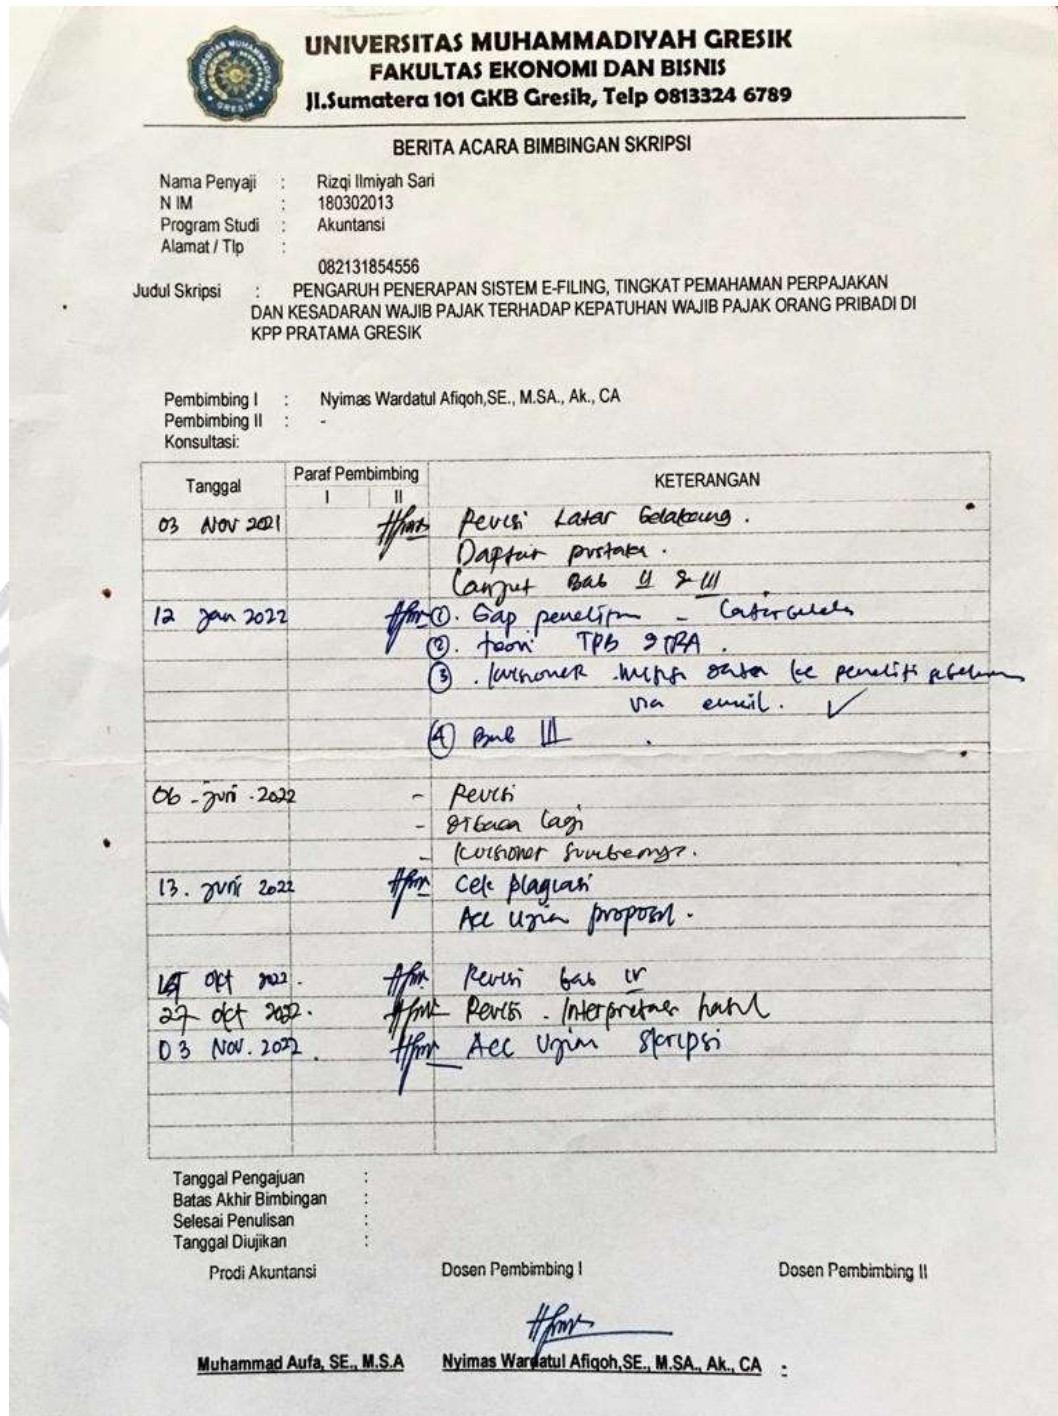 UNIVERSITAS MUHAMMADIYAH GRESIK
FAKULTAS EKONOMI DAN BISNIS
Jl.Sumatera 101 GKB Gresik, Telp 0813324 6789
BERITA ACARA BIMBINGAN SKRIPSI
Nama Penyaji : Rizqi Ilmiyah Sari
N IM : 180302013
Program Studi : Akuntansi
Alamat / Tlp :
082131854556
Judul Skripsi : PENGARUH PENERAPAN SISTEM E-FILING, TINGKAT PEMAHAMAN PERPAJAKAN
DAN KESADARAN WAJIB PAJAK TERHADAP KEPATUHAN WAJIB PAJAK ORANG PRIBADI DI
KPP PRATAMA GRESIK
Pembimbing I : Nyimas Wardatul Afiqoh,SE., M.SA., Ak., CA
Pembimbing II : -
Konsultasi:
Tanggal Paraf Pembimbing KETERANGAN
I II
03 Nov 2021 Revisi Latar belakang.
Daftar pustaka.
Lanjut Bab II & III
12 Jan 2022 ①. Gap penelitian -
②. teori TPB & TRA.
③. kuisioner ke peneliti
via email. ✓
④ Bab III
06 - Juni - 2022 - Revisi
- dibaca lagi
- kuisioner sumbernya.
13. Juni 2022 Cek plagiasi
Acc Ujian proposal.
Okt 2022. Revisi bab IV
27 Okt 2022. Revisi. Interpretasi hasil
03 Nov. 2022. Acc Ujian Skripsi
Tanggal Pengajuan :
Batas Akhir Bimbingan :
Selesai Penulisan :
Tanggal Diujikan :
Prodi Akuntansi Dosen Pembimbing I Dosen Pembimbing II
Muhammad Aufa, SE., M.S.A Nyimas Wardatul Afiqoh,SE., M.SA., Ak., CA -